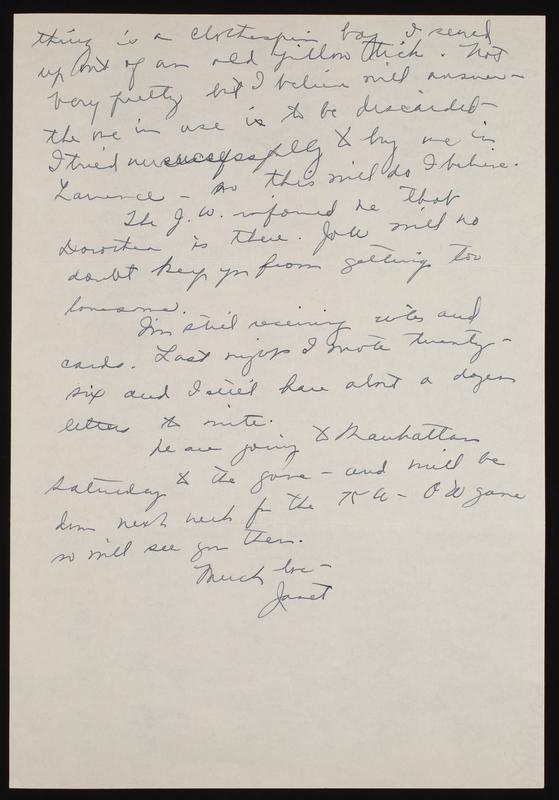 thing is a clothespin bag I sewed
up out of an old pillow tick. Not
very pretty but I believe will answer –
the one in use is to be discarded –
I tried unsuccessfully to buy one in
Lawrence – so this will do I believe.
The J. W. informed me that
Dorothea is there. John will no
doubt keep you from getting too
lonesome.
I'm still receiving notes and
cards. Last night I wrote twenty-
six and I still have about a dozen
letters to write.
We are going to Manhattan
Saturday to the game – and will be
down next week for the K U – O U game
so will see you then.
Much love –
Janet